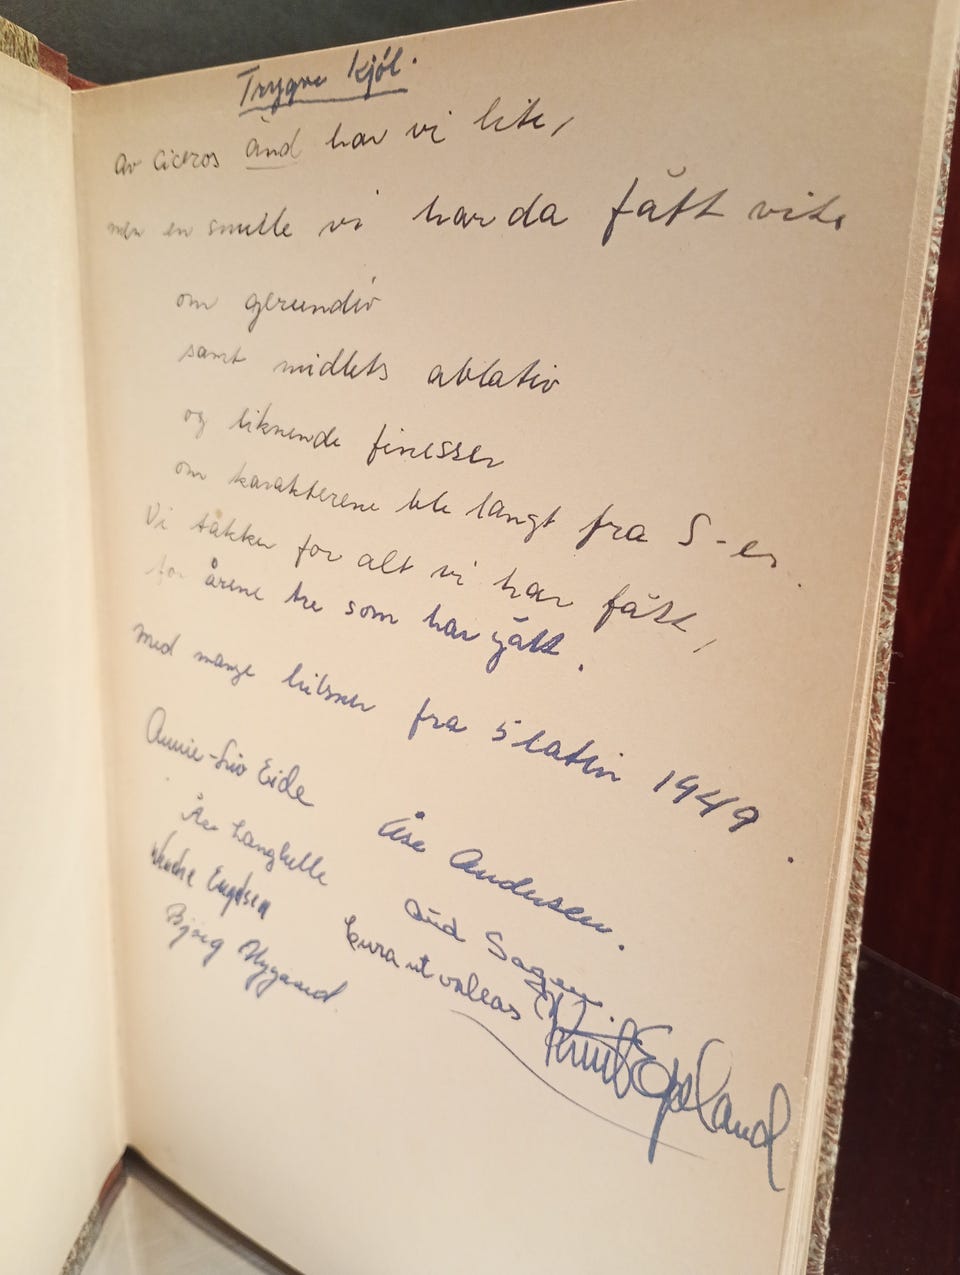 Trygve Kjöl.
av Ciceros ånd har vi lite,
men en smule vi har da fått vite
om gerundiv
samt midlets ablativ
og liknende finesser
om karakterene ble langt fra S-er.
Vi takker for alt vi har fått,
for årene tre som har gått.
Med mange hilsner fra 5 latin 1949.
Annie-Liv Eide
Åse Andersen.
Åse Langhelle
Aud Sagen.
Wenche Engelsen
Cura ut valeas
Bjørg Nygaard
Knut Espeland